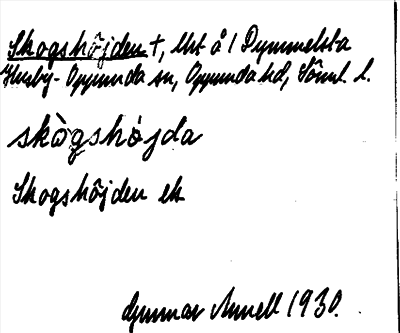 Skogshöjden †, lht å 1 Dymmelsta
Husby-Oppunda sn, Oppunda hd, Söml. l.
skògshöjda
Skogshöjden ek
Gunnar Arnell 1930.